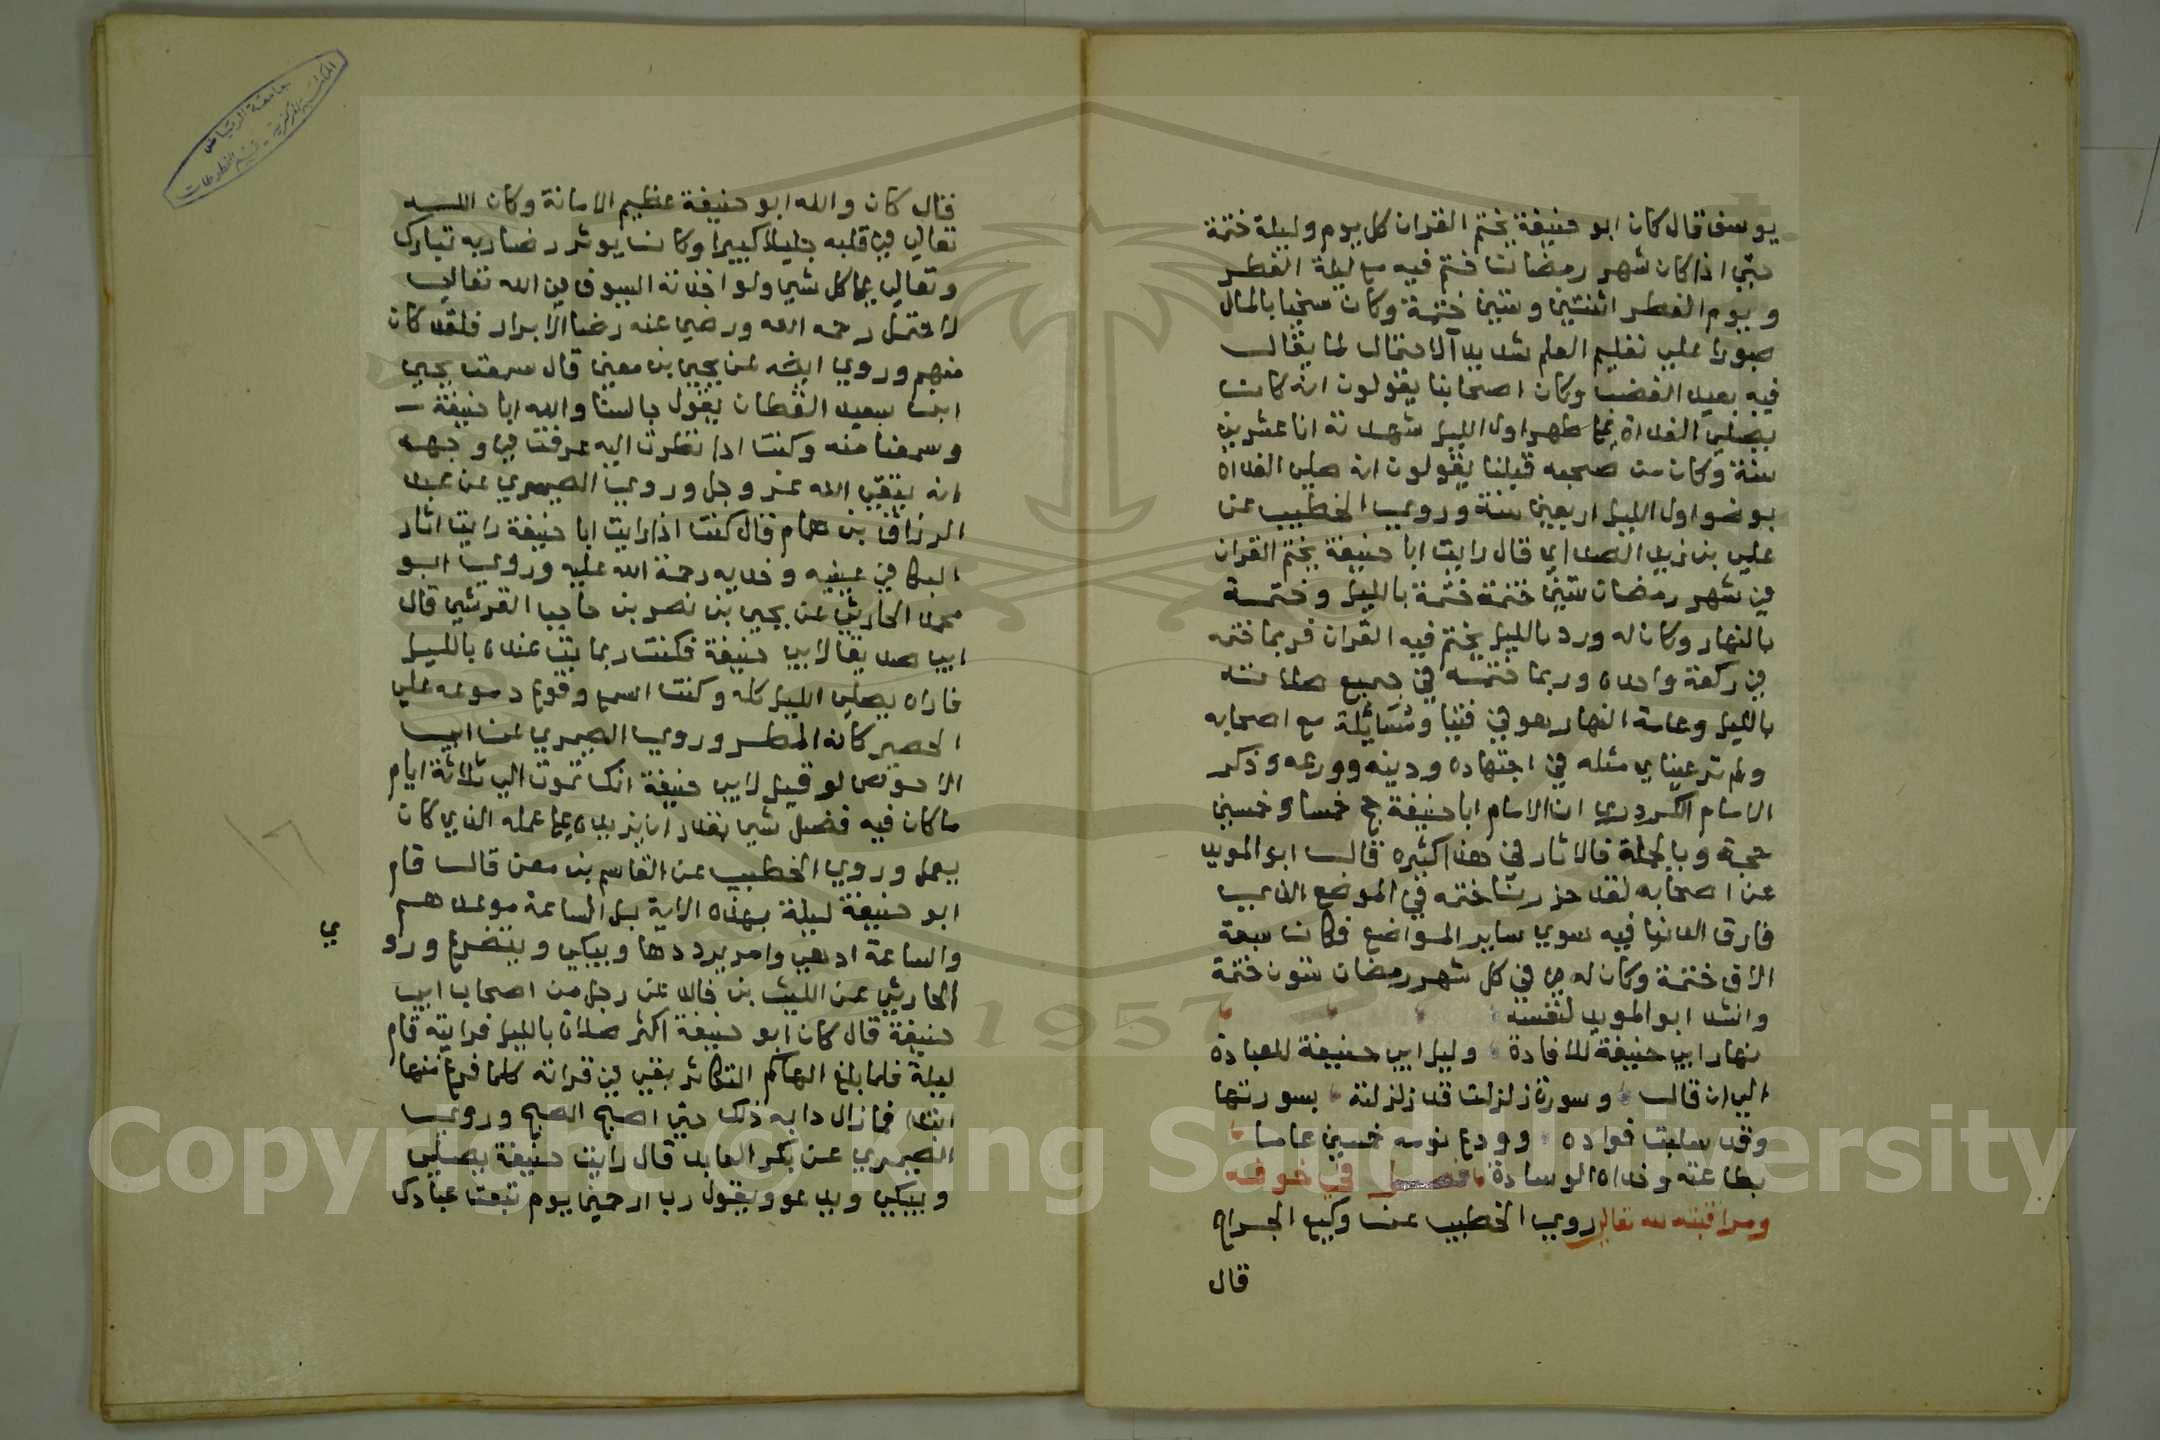 يوسف قال كان ابو حنيفة يختم القران كل يوم وليلة ختمة
حتي اذا كان شهر رمضان ختم فيه مع ليلة الفطر
ويوم الفطر اثنتين وستين ختمة وكان سخيا بالمال
صبورا علي تعليم العلم شديد الاحتمال لما يقال
فيه بعيد الغضب وكان اصحابنا يقولون انه كان
يصلي الغداة علي طهر اول الليل شهدته انا عشرين
سنة وكان من صحبه قبلنا يقولون انه صلي الغداة
بوضو اول الليل اربعين سنة وروي الخطيب عن
علي بن زيد الصداي قال رايت ابا حنيفة يختم القران
في شهر رمضان ستين ختمة ختمة بالليل وختمة
بالنهار وكان له ورد بالليل يختم فيه القران فربما ختمه
في ركعة واحدة وربما ختمه في جميع صلاته
بالليل وعامة النهار هو في فتيا ومسايلة مع اصحابه
ولم تر عيناي مثله في اجتهاده ودينه وورعه وذكر
الامام الكردري ان الامام ابا حنيفة حج خمسا وخمسين
حجة وبالجملة فالاثار في هذا كثيره قال ابو المويد
عن اصحابه لقد حزرنا ختمه في الموضع الذي
فارق الدنيا فيه سوي ساير المواضع فكان سبعة
الاف ختمة وكان له في كل شهر رمضان ستون ختمة
وانشد ابو المويد لنفسه
نهار ابي حنيفة للافادة وليل ابي حنيفة للعبادة
الي ان قال وسورة زلزلت قد زلزلته بسورتها
وقد سلبت فواده وودع نومه خمسين عاما
بطاعته وخداه الوسادة فصل في خوفه
ومراقبته لله تعالي روي الخطيب عن وكيع الجراح
قال
قال كان والله ابو حنيفة عظيم الامانة وكان الله
تعالي في قلبه جليلا كبيرا وكان يوثر رضا ربه تبارك
وتعالي علي كل شي ولو اخذته السيوف في الله تعالي
لاحتمل رحمه الله ورضي عنه رضا الابرار فلقد كان
منهم وروي ايضه عن يحيي بن معين قال سمعت يحيي
ابن سعيد القطان يقول جالسنا والله ابا حنيفة
وسمعنا منه وكنت اذا نظرت اليه عرفت في وجهه
انه يتقي الله عز وجل وروي الصيمري عن عبد
الرزاق بن همام قال كنت اذا رايت ابا حنيفة رايت اثار
البكا في عينيه وخديه رحمة الله عليه وروي ابو
محمد الحارثي عن يحيي بن نصر بن حاجب القرشي قال
ابي صديقا لابي حنيفة فكنت ربما بت عنده بالليل
فاراه يصلي الليل كله وكنت اسمع وقوع دموعه علي
الحصير كانه المطر وروي الصيمري عن ابي
الاحوص لو قيل لابي حنيفة انك تموت الي ثلاثة ايام
ما كان فيه فضل شي يقدر ان يزيده علي عمله الذي كان
يعمل وروي الخطيب عن القاسم بن معن قال قام
ابو حنيفة ليلة بهذه الاية بل الساعة موعدهم
والساعة ادهي وامر يرددها ويبكي ويتضرع ورو
ي
الحارثي عن الليث بن خالد عن رجل من اصحاب ابي
حنيفة قال كان ابو حنيفة اكثر صلاة بالليل فرايته قام
ليلة فلما بلغ الهاكم التكاثر بقي في قراته كلما فرغ منها
ابتدا فما زال دابه ذلك حتي اصبح الصبح وروي
الصيمري عن بكر العابد قال رايت حنيفة يصلي
ويبكي ويدعو ويقول رب ارحمني يوم تبعث عبادك
جامعة الرياض
المكتبة المركزية - قسم المخطوطات
1957
Copyright © King Saud University